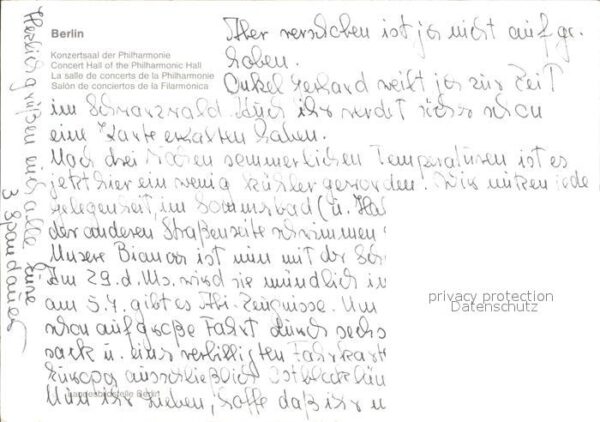 Berlin
Konzertsaal der Philharmonie
Concert Hall of the Philharmonic Hall
La salle de concerts de la Philharmonie
Salón de conciertos de la Filarmonica
Aber verschoben ist ja nicht aufge-
hoben.
Onkel Gerhard weilt ja zur Zeit
im Schwarzwald. Auch ihr werdet sicher schon
eine Karte erhalten haben.
Nach drei Wochen sommerlichen Temperaturen ist es
jetzt hier ein wenig kühler geworden. Wir nützen jede
Gelegenheit im Sommerbad (u. Hal
der anderen Straßenseite schwimmen
Unsere Bianca ist nun mit der Sch
Am 29. d. Ms. wird sie mündlich in
am 5.7. gibt es Abi-Zeugnisse. Um
schon auf große Fahrt durch sechs
sack u. eines verbilligten Fahrkart
Europa ausschließlich Ostblocklän
Nun ihr Lieben, hoffe daß ihr u
Landesbildstelle Berlin
Herzlich grüßen euch alle Eure
3 Spandauer
privacy protection
Datenschutz